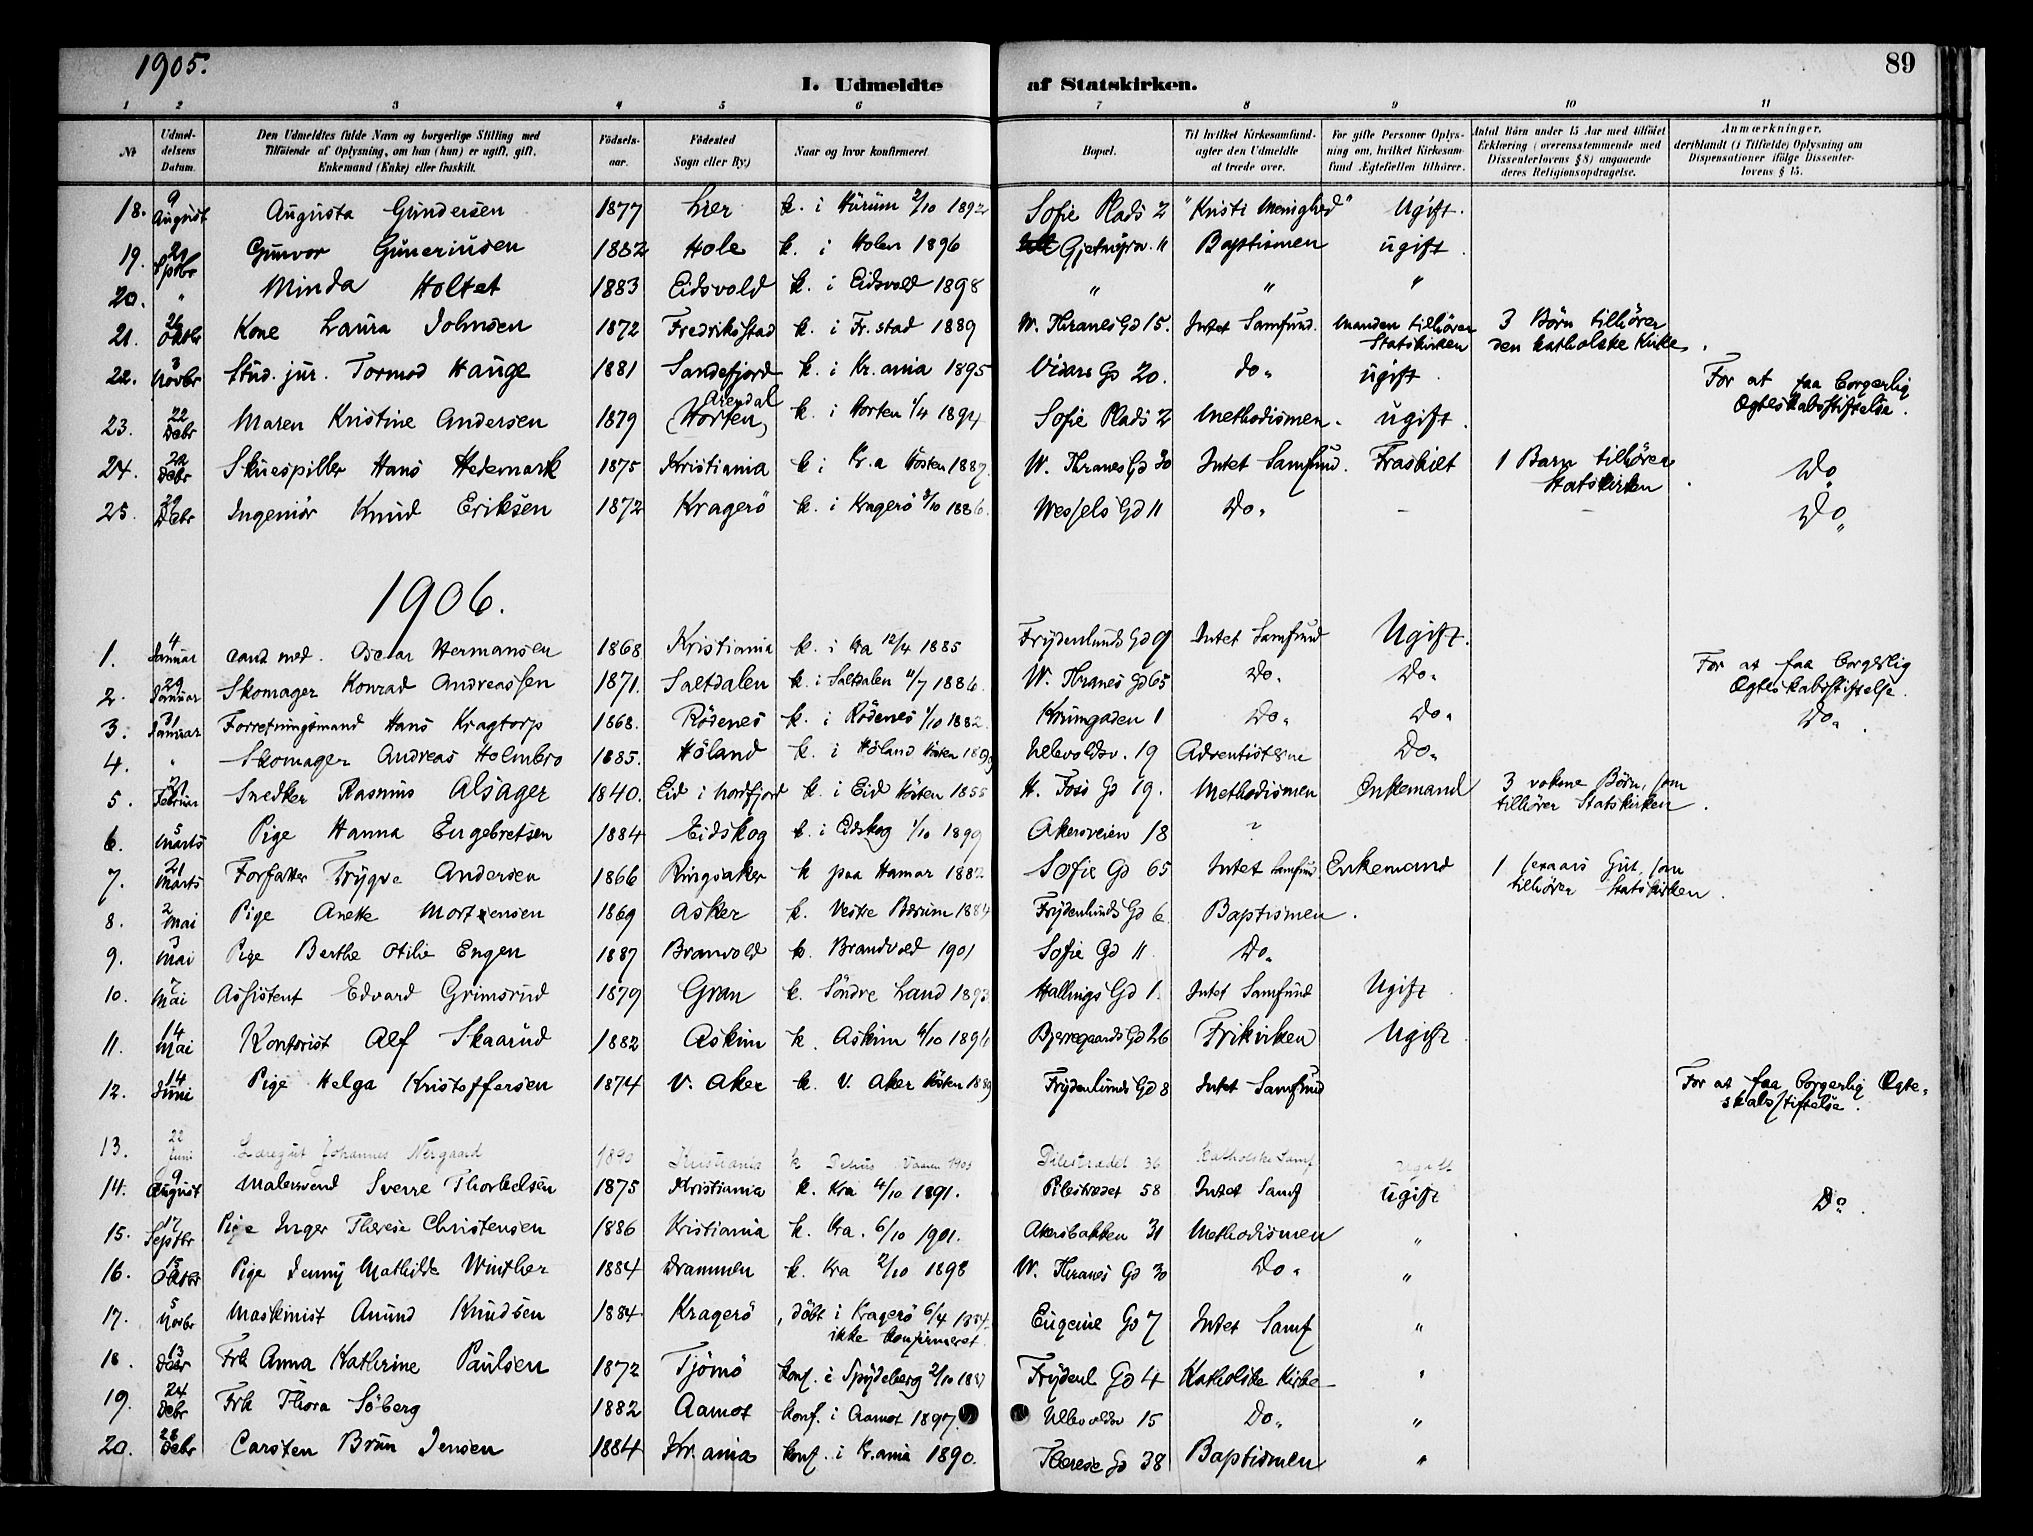 1905.
89
I. Udmeldte af Statskirken.
1 2 3 4 5 6 7 8 9 10 11
No | Udmeldelsens Datum. | Den Udmeldtes fulde Navn og borgerlige Stilling med Tilföiende af Oplysning, om han (hun) er ugift, gift, Enkemand (Enke) eller fraskilt. | Födselsaar. | Födested Sogn eller By.) | Naar og hvor konfirmeret | Bopæl. | Til hvilket Kirkesamfund agter den Udmeldte at træde over. | For gifte Personer Oplysning om, hvilket Kirkesamfund Ægtefællen tilhörer. | Antal Börn under 15 Aar med tilföiet Erklæring (overensstemmende med Dissenterlovens § 8) angaaende deres Religionsopdragelse. | Anmærkninger, derblandt (i Tilfælde) Oplysning om Dispensationer ifölge Dissenterlovens § 15.
18. 9 August Augusta Gundersen 1877 Lier k. i Hurum 2/10 1892 Sofie Plads 2 "Kristi Menighed" Ugift.
19. Septbr Gunvor Guneriusen 1882 Hole k. i Holen 1896 11 Baptismen ugift
20. " Minda Holtet 1883 Eidsvold k. i Eidsvold 1898 " " "
21. Oktbr Kone Laura Johnsen 1872 Fredrikstad k. i Fr.stad 1889 W. Thranes Gd 15. Intet Samfund. Manden tilhörer Statskirken 3 Börn tilhörer den katholske Kirke.
22. 3 Novbr Stud. jur. Tormod Hauge 1881 Sandefjord k. i Kr.ania 1895 Vidars Gd 20. do. ugift. For at faa borgerlig Ægteskabsstiftelse.
23. 22 Debr Maren Kristine Andersen 1879 Arendal (Horten) k. i Horten 1/4 1894 Sofie Plads 2 Methodismen. ugift.
24. 22 Debr Skuespiller Hans Hedemark 1875 Kristiania k i Kr.a Hösten 1887. W. Thranes Gd 30 Intet Samfund. Fraskilt 1 Barn tilhörer Statskirken. Do
25. 29 Debr Ingeniör Knud Eriksen 1872 Kragerö k. i Kragerö 3/10 1886. Wessels Gd 11 Do. - - Do
1906.
1. 4 Januar cand med. Oscar Hermansen 1868 Kristiania k. i Kra 12/4 1885 Frydenlunds Gd 9 Intet Samfund Ugift.
2. 29 Januar Skomager Konrad Andreassen 1871. Saltdalen k. i Saltdalen 11/7 1886. W. Thranes Gd 65 Do. Do. For at faa borgerlig Ægteskabsstiftelse.
3. 31 Januar Forretningsmand Hans Kragtorp 1868. Rödenes k. i Rödenes 1/10 1882. Krumgaden 1 Do. Do. Do.
4. " Skomager Andreas Holmbro 1885. Höland k. i Höland Hösten 1899 Ullevoldsv. 19 Adventisterne Do.
5. Februar Snedker Rasmus Alsager 1840. Eid i Nordfjord k. i Eid Hösten 1855 H. Foss Gd 19. Methodismen Enkemand 3 voksne Börn, som tilhörer Statskirken.
6. 5 Marts Pige Hanna Engebretsen 1884 Eidskog k. i Eidskog 1/10 1899 Akersveien 18 ?
7. 21 Marts Forfatter Trygve Andersen 1866 Ringsaker k paa Hamar 1882 Sofie Gd 65 Intet Samfund Enkemand 1 sexaars Gut, som tilhörer Statskirken.
8. 2 Mai Pige Anette Mortensen 1869 Asker k. Vestre Bærum 1884 Frydenlunds Gd 6 Baptismen.
9. 3 Mai Pige Berthe Otilie Engen 1887 Branvold k. Brandvold 1901 Sofie Gd 11. Do.
10. 7 Mai Assistent Edvard Grimsrud 1879 Gran k. Söndre Land 1893 Hallings Gd 1. Intet Samfund Ugift
11. 14 Mai Kontorist Alf Skaarud 1882 Askim k. Askim 4/10 1896 Bjerregaards Gd 26 Frikirken Ugift
12. 14 Juni Pige Helga Kristoffersen 1874 V. Aker k. V. Aker Hösten 1889 Frydenlunds Gd 8 Intet Samfund For at faa borgerlig Ægteskabsstiftelse.
13. 22 Juni Læregut Johannes Nergaard 1890 Kristiania k Petrus Vaaren 1905 Pilestrædet 36 Katholske Samf Ugift
14. 9 August Malersvend Sverre Thorkelsen 1875 Kristiania k. Kra 4/10 1891. Pilestrædet 58 Intet Samf ugift Do.
15. 17 Septbr Pige Inger Therese Christensen 1886 Kristiania k. Kra. 6/10 1901. Akersbakken 31 Methodismen "
16. 15 Oktbr Pige Jenny Mathilde Winther 1884 Drammen k. Kra 2/10 1898 W. Thranes Gd 30 Do. "
17. 5 Novbr Maskinist Anund Knudsen 1884 Kragerö, döbt i Kragerö 6/4 1884. ikke konfirmeret. Eugenie Gd 7 Intet Samf "
18. 13 Debr Frk Anna Kathrine Paulsen 1872 Tjömö konf. i Spydeberg 2/10 1887 Frydenl Gd 4 Katholske Kirke "
19. 24 Debr Frk Thora Söberg 1882 Aamot konf. i Aamot 1897. Ullevoldsv 15 Do. "
20. 28 Debr Carsten Brun Jensen 1884 Kr.ania konf. i Kr.ania 1890. Therese Gd 38 Baptismen "